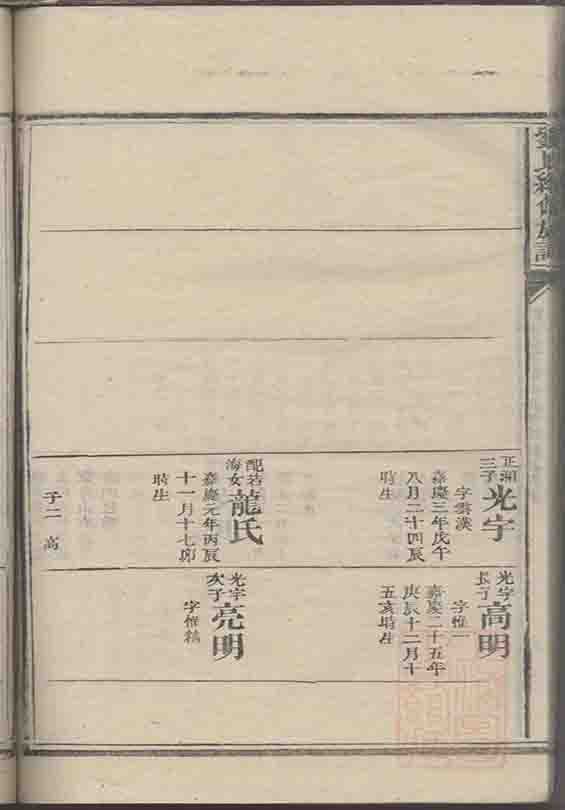 劉氏續修族譜
正
三子
光宇
字雲漢
嘉慶三年戊午
八月二十四辰
時生
配若
海女
龍氏
嘉慶元年丙辰
十一月十七卯
時生
子二 高
光宇
長子
高明
字惟一
嘉慶二十五年
庚辰十二月十
五亥時生
光宇
次子
亮明
字惟精